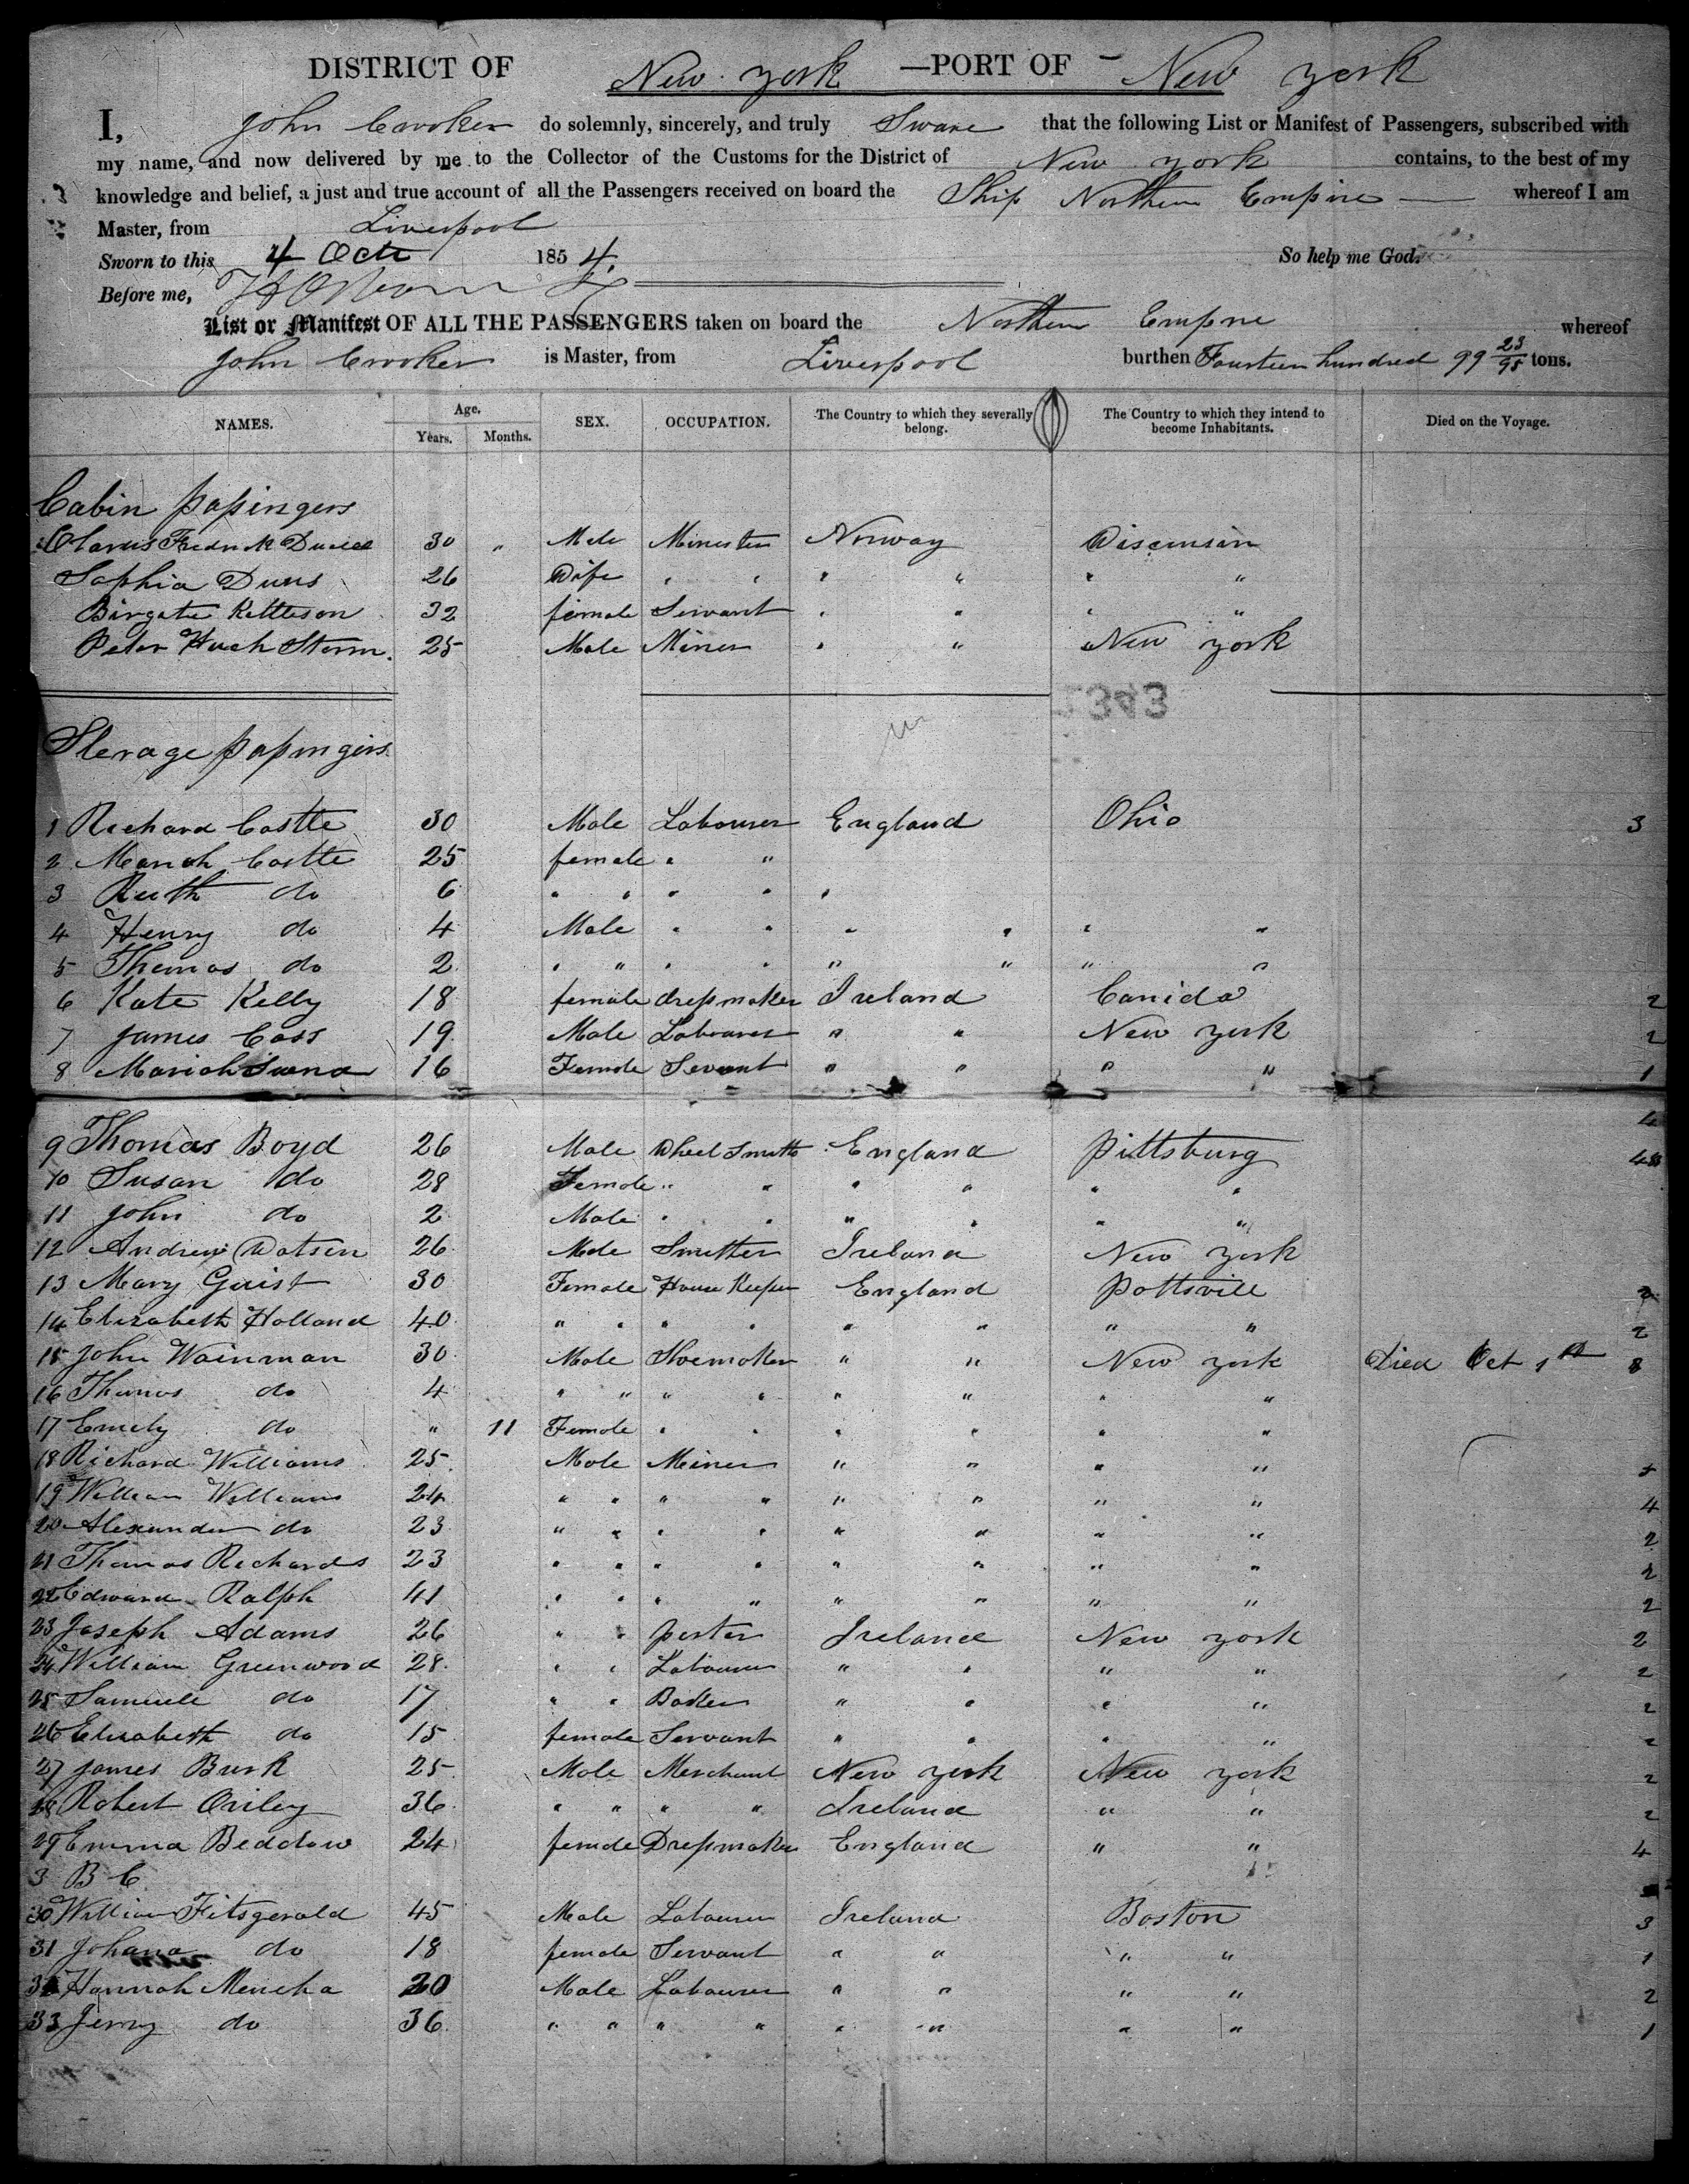 DISTRICT OF New York —PORT OF - New York
I, John Crooker do solemnly, sincerely, and truly Sware that the following List or Manifest of Passengers, subscribed with
my name, and now delivered by me to the Collector of the Customs for the District of New York contains, to the best of my
knowledge and belief, a just and true account of all the Passengers received on board the Ship Northern Empire whereof I am
Master, from Liverpool
Sworn to this 4 Oct 1854. So help me God.
Before me,
List or Manifest OF ALL THE PASSENGERS taken on board the Northern Empire whereof
John Crooker is Master, from Liverpool burthen Fourteen hundred 99 23/95 tons.
NAMES. Age. Years. Months. SEX. OCCUPATION. The Country to which they severally belong. The Country to which they intend to become Inhabitants. Died on the Voyage.
Cabin passingers
Fredrick 30 " Male Minister Norway Wisconsin
Sophia Duus 26 Wife " " " " " "
Birgate Kittleson 32 female Servant " " " "
Peter Storm. 25 Male Miner " " New York
343
Sterage passingers
1 Richard Castle 30 Male Labourer England Ohio 3
2 Mariah Castle 25 female " "
3 Ruth do 6 " " " " "
4 Henry do 4 Male " " " " " "
5 Thomas do 2 " " " " " " " "
6 Kate Kelly 18 female dressmaker Ireland Canida 2
7 James Cass 19 Male Labourer " " New York 2
8 Mariah 16 Female Servant " " " " 1
4
9 Thomas Boyd 26 Male Wheel Smith England Pittsburg 4
10 Susan do 28 Female " " " " " "
11 John do 2 Male " " " " " "
12 Andrew Watson 26 Male Smitter Ireland New York
13 Mary Guist 30 Female House Keeper England Pottsvill 2
14 Elizabeth Holland 40 " " " " " " " " 2
15 John Wainman 30 Male Shoemaker " " New York Died Oct 1st 8
16 Thomas do 4 " " " " " " " "
17 Emely do " 11 Female " " " " " "
18 Richard Williams 25 Male Miner " " " "
19 William Williams 24 " " " " " " " " 4
20 Alexander do 23 " " " " " " " " 2
21 Thomas Richards 23 " " " " " " " " 2
22 Edward Ralph 41 " " " " " " " " 2
23 Joseph Adams 26 " " porter Ireland New York 2
24 William Greenwood 28 " " Labourer " " " " 2
25 Samuell do 17 " " Baker " " " " 2
26 Elizabeth do 15 female Servant " " " " 2
27 James Burk 25 Male Merchant New York New York 2
28 Robert Oriley 36 " " " " Ireland " " 2
29 Emma Beddow 24 female Dressmaker England " " 4
3 B C
30 William Fitsgerald 45 Male Labourer Ireland Boston 3
31 Johana do 18 female Servant " " " " 1
32 Hannah Mencha 20 Male Labourer " " " " 2
33 Jerry do 36 " " " " " " " " 1